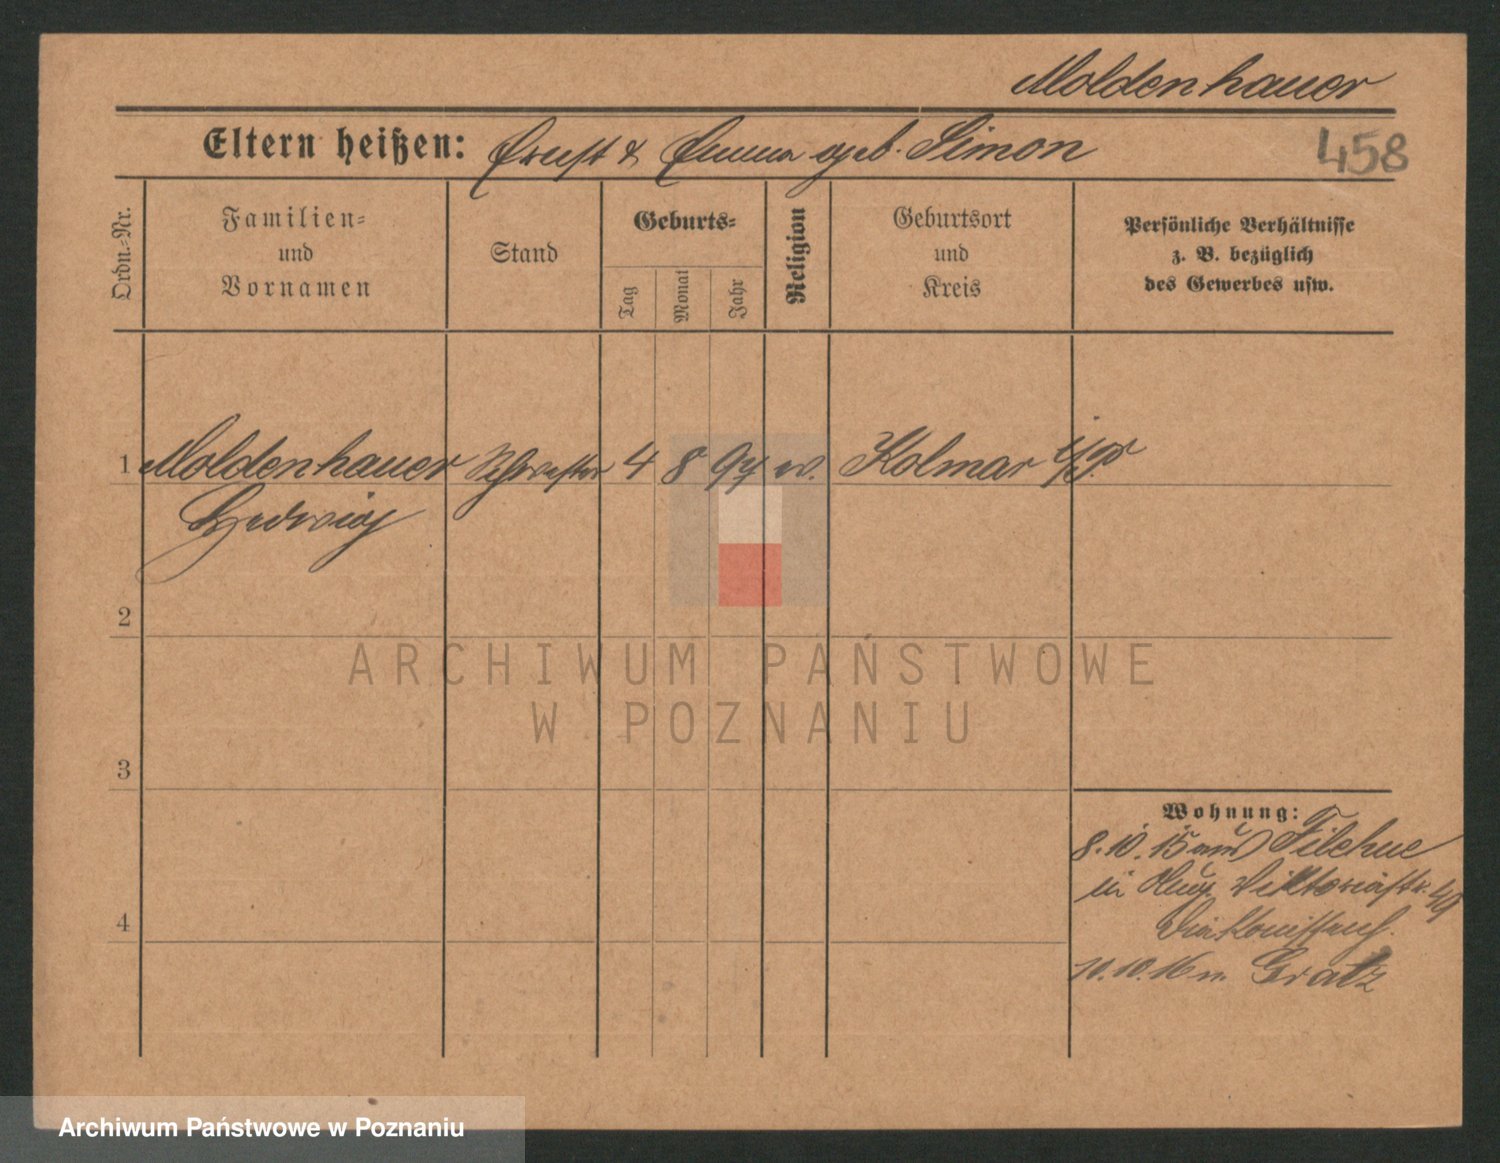 Moldenhauer
Eltern heißen: Ernst & Emma geb. Simon
458
Ordn.=Nr.
Familien=
und
Vornamen
Stand
Geburts=
Tag
Monat
Jahr
Religion
Geburtsort
und
Kreis
Persönliche Verhältnisse
z. B. bezüglich
des Gewerbes usw.
1 Moldenhauer Schwester 4 8 94 ev. Kolmar i/P.
Hedwig
2
ARCHIWUM PAŃSTWOWE
W POZNANIU
3
Wohnung:
8.10.15 aus Filehne
in Viktoriastr. 49
Diakonissenh.
10.10.16 n. Gratz
4
Archiwum Państwowe w Poznaniu